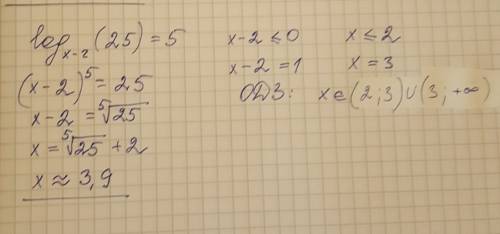 log_{x-2}(25) = 5
(x-2)^5 = 25
x-2 = \sqrt[5]{25}
x = \sqrt[5]{25} + 2
x ≈ 3,9
x-2 ≤ 0 x ≤ 2
x-2 = 1 x = 3
ОДЗ: x ∈ (2;3)∪(3;+∞)